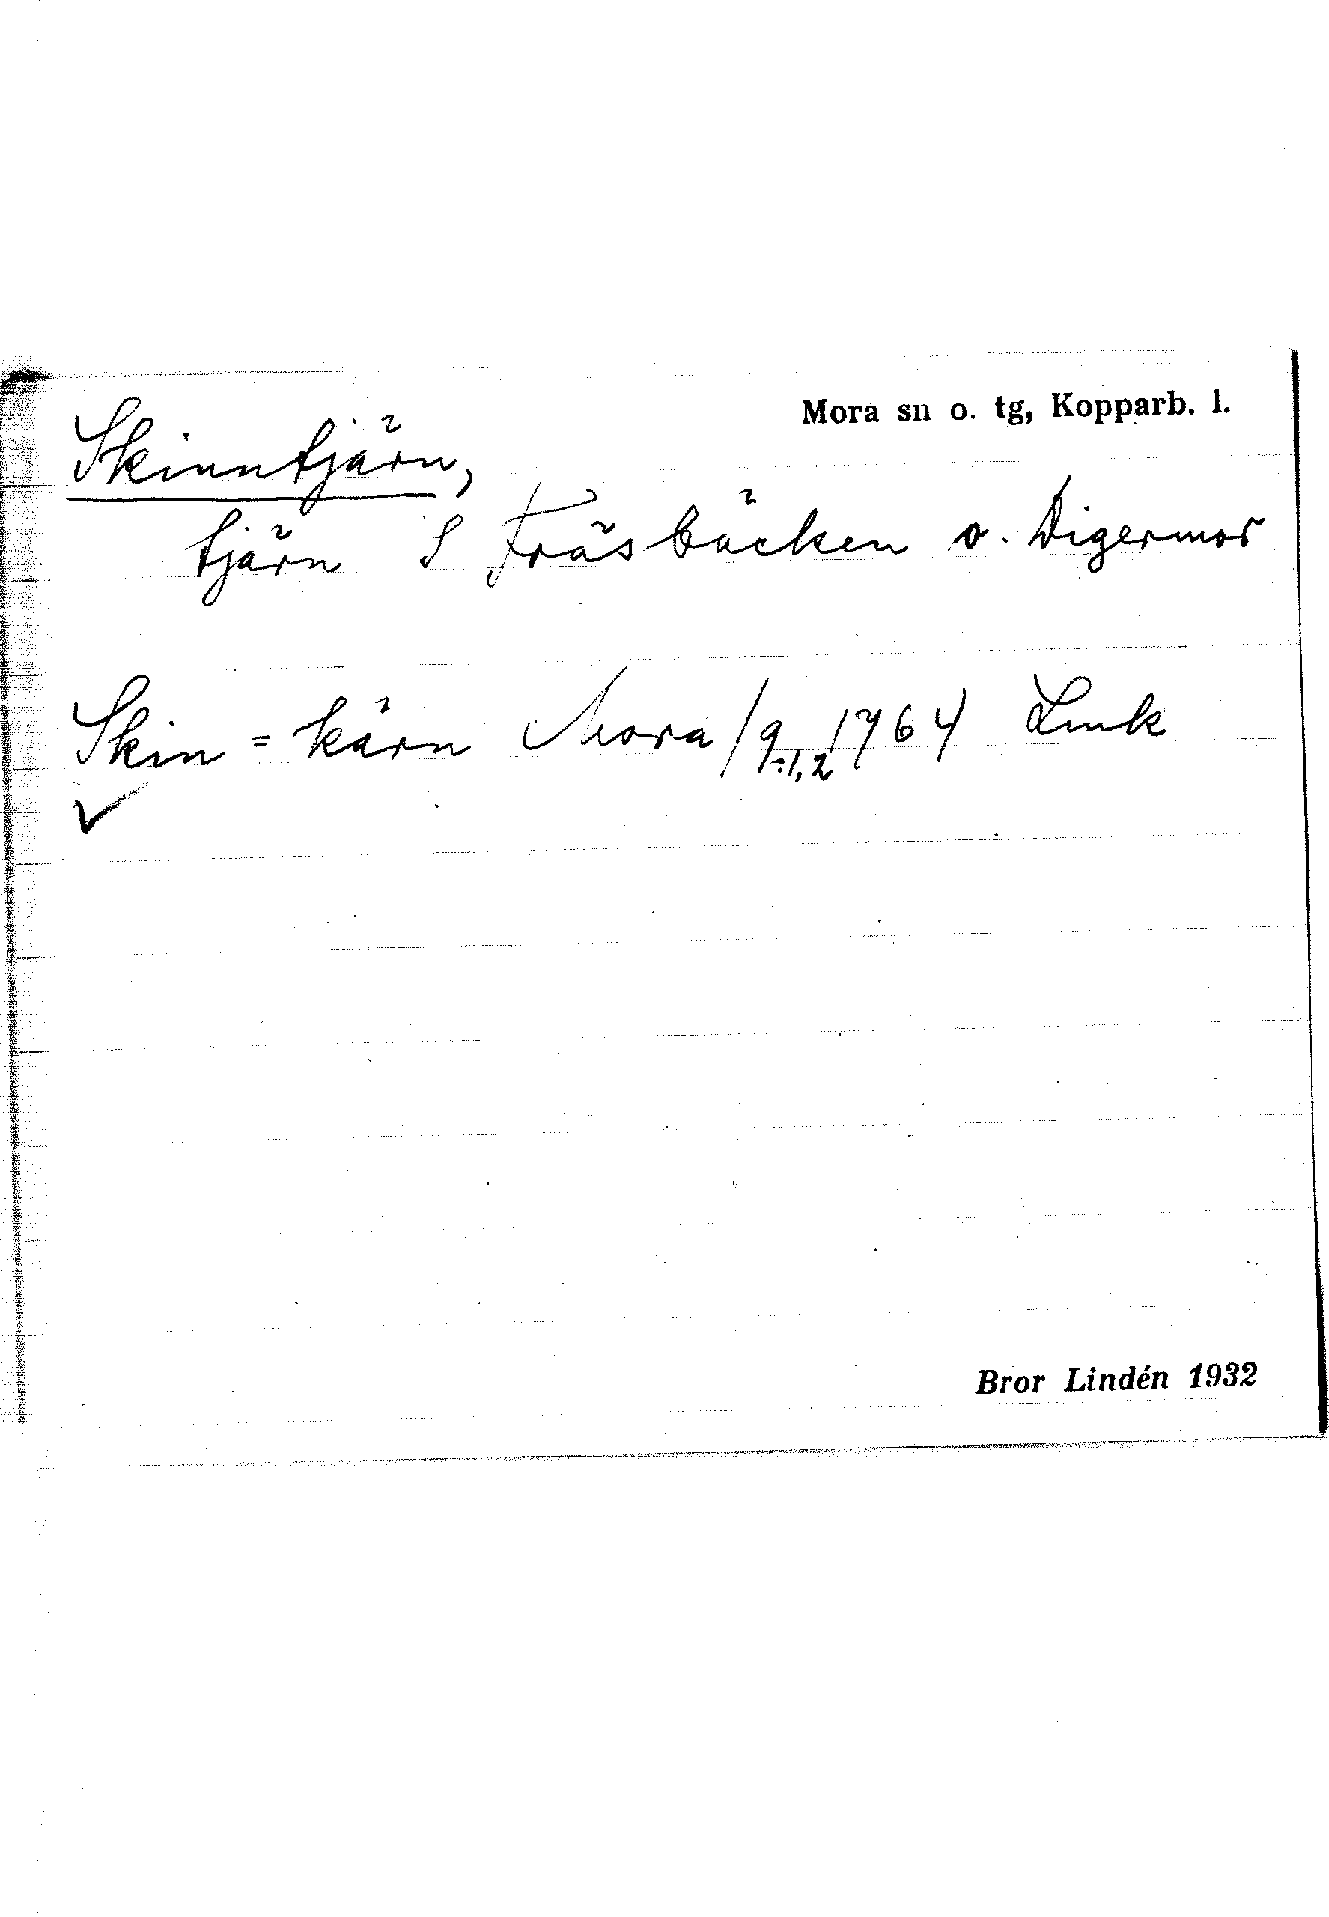 Mora sn o. tg, Kopparb. l.
Skinntjärn,
tjärn S Fräsbäcken o. Digermor
Skin = kärn Mora / 9 1,2 1764 Lmk
Bror Lindén 1932